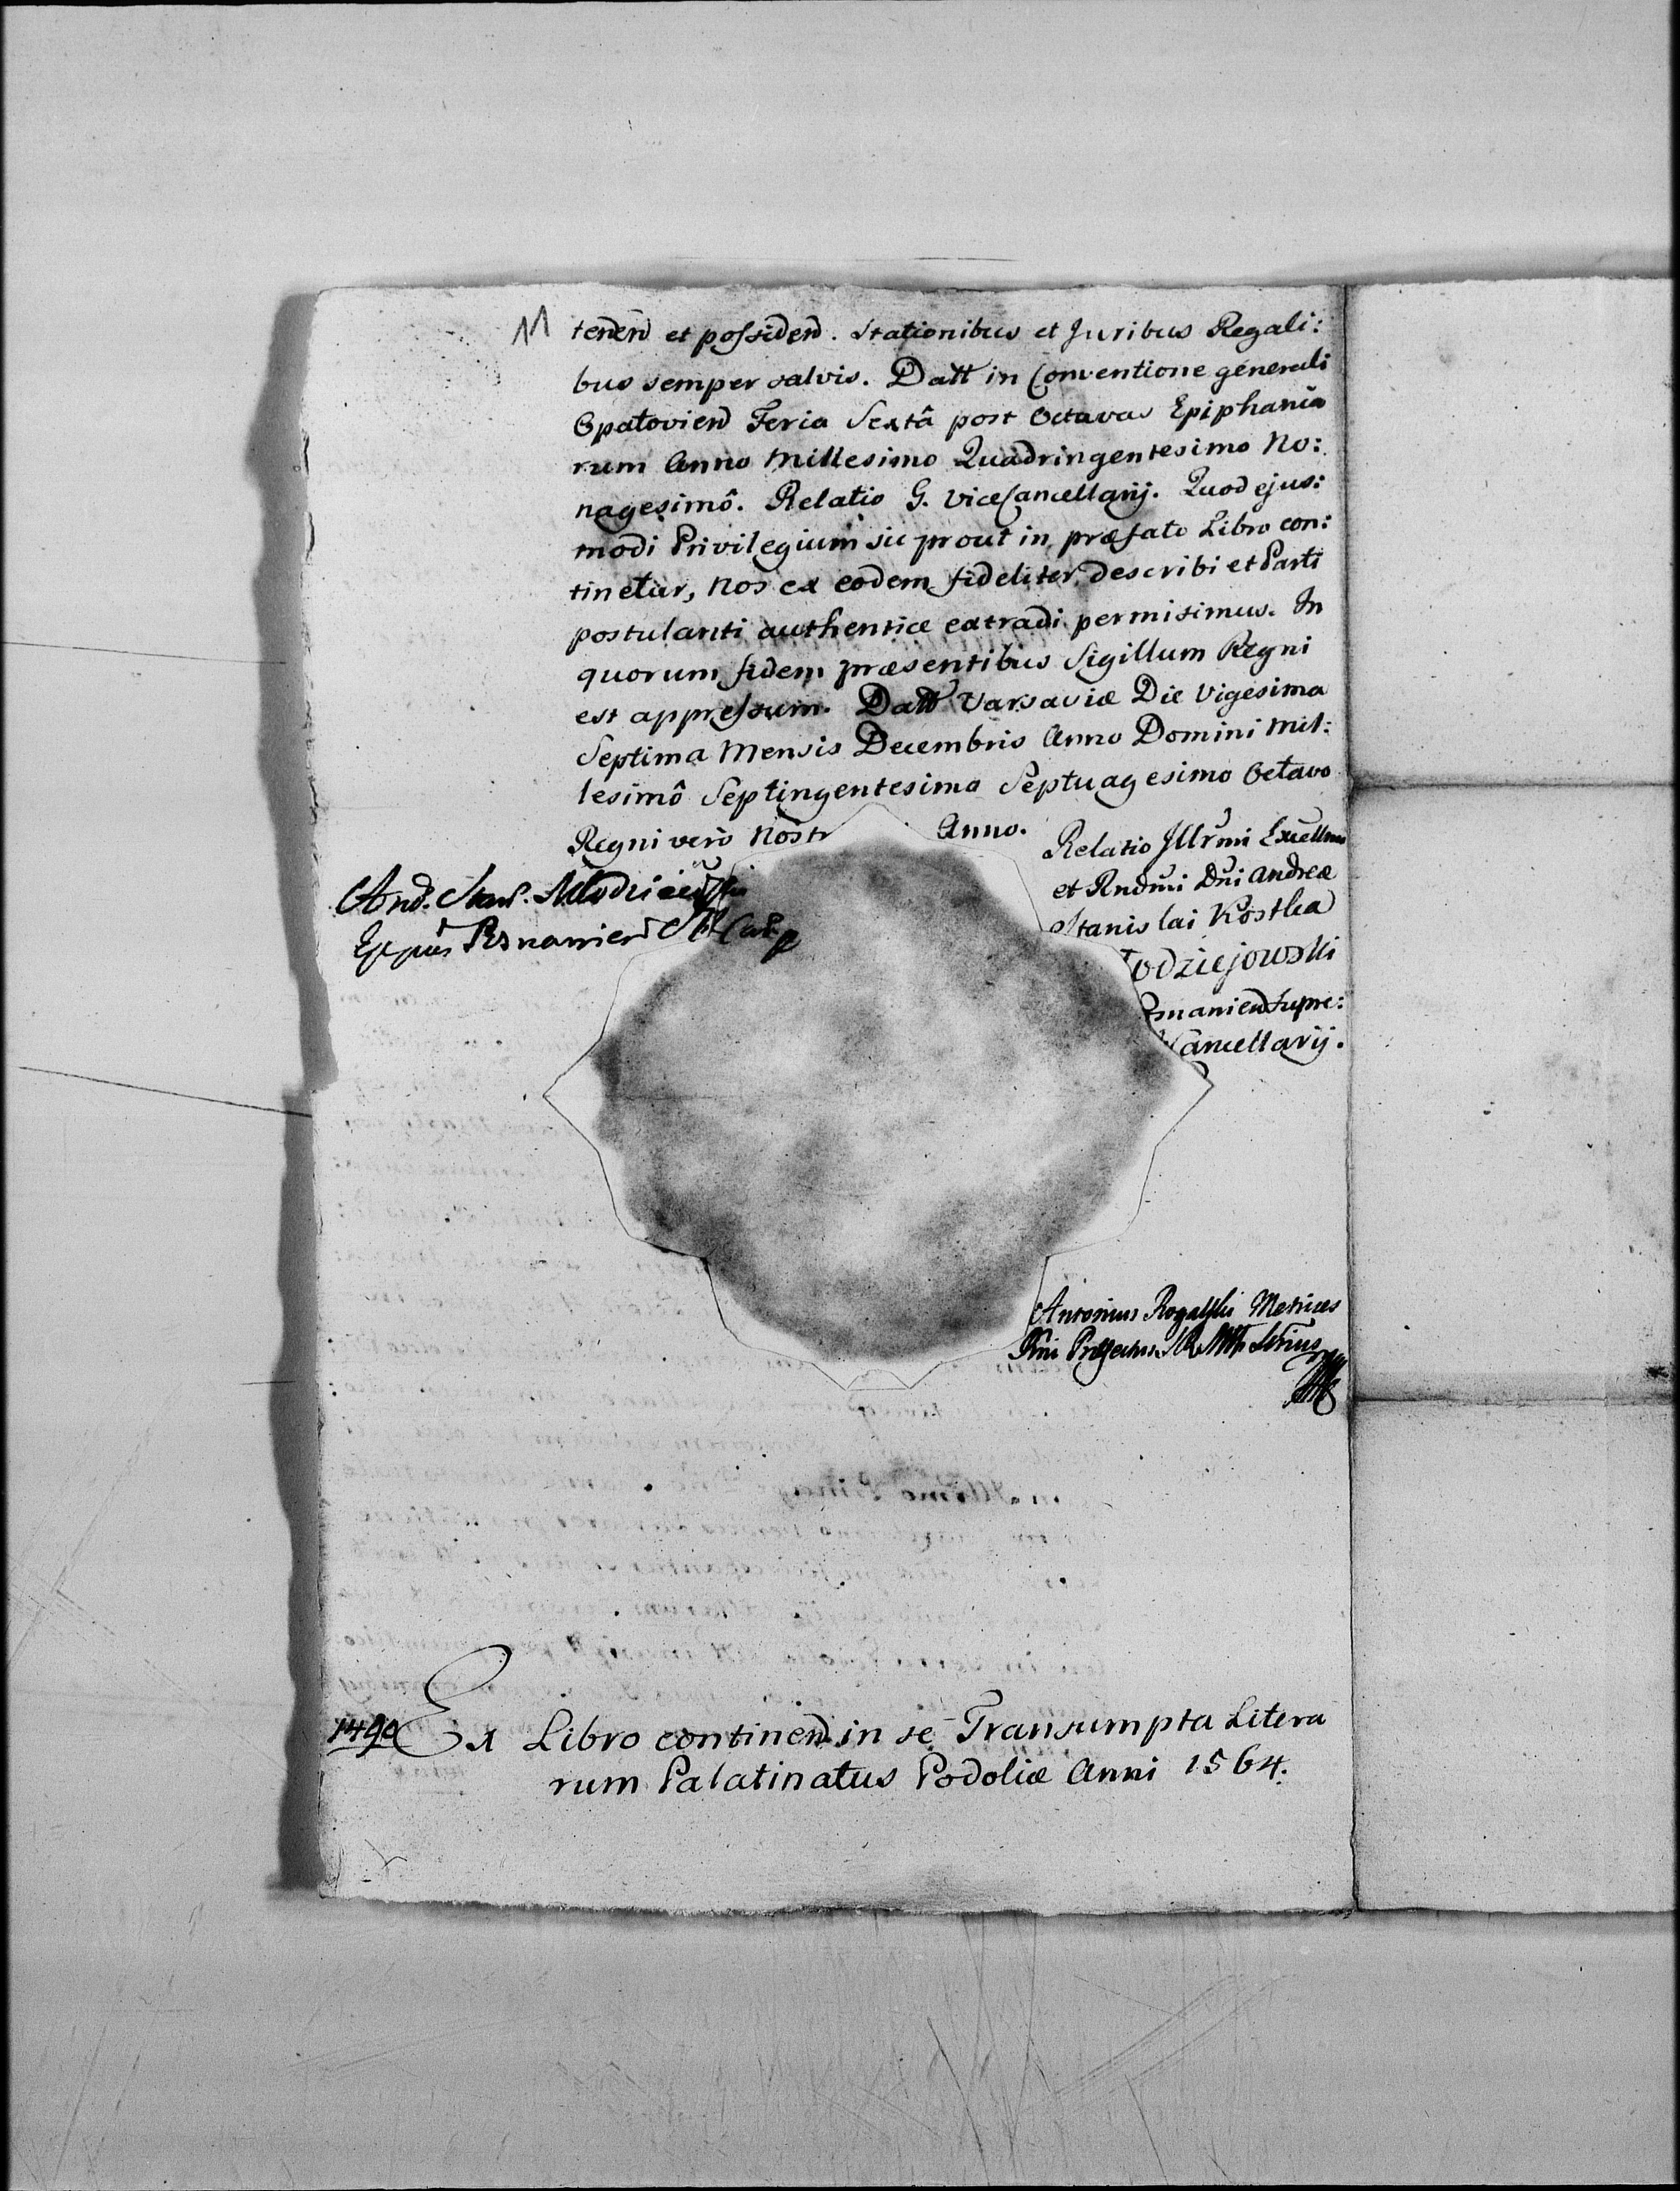 11 tenen̄d et possiden̄d. Stationibus et Juribus Regali:
bus semper salvis. Datt in Conventione generali
Opatovien̄ Feria Sextâ post Octavas Epiphania
rum Anno Millesimo Quadringentesimo No:
nagesimô. Relatio G. ViceCancellarij. Quod ejus:
modi Privilegium sic prout in præfato Libro con:
tinetur, Nos ex eodem fideliter describi et Parti
postulanti authentice extradi permisimus. In
quorum fidem præsentibus Sigillum Regni
est appressum. Datt Varsaviæ Die Vigesima
Septima Mensis Decembris Anno Domini Mil:
lesimô Septingentesimo Septuagesimo Octavo
Regni verò Nostr Anno.
Relatio Illr̄mi Excellmi
et Rndm̄i Dn̄i Andreæ
Stanislai Kostka
łodziejowski
snanien̄ Supre:
Cancellarij.
And. Stan. Młodzieiowski
Eppūs Posnanien̄
Antonius Rogalski Metrices
Rn̄i Præfectus
1490 Ex Libro continen̄. in se Transumpta Litera
rum Palatinatus Podoliæ Anni 1564.